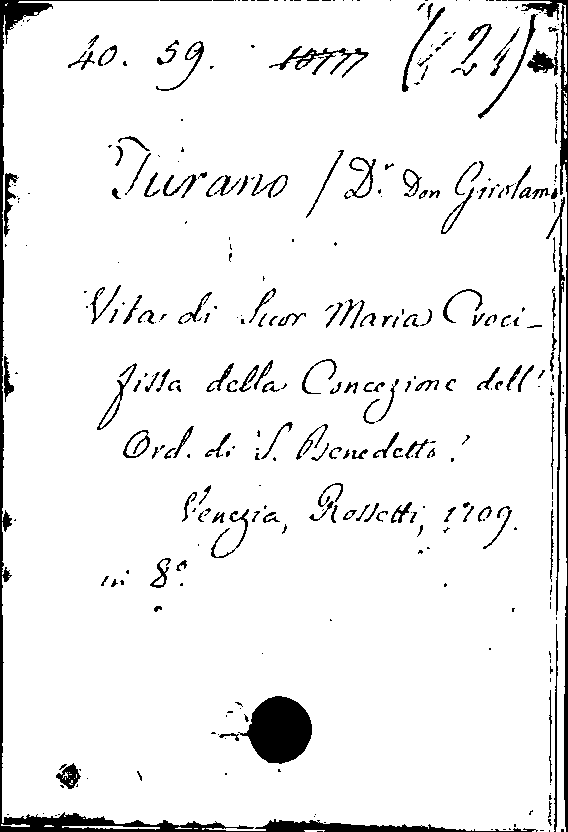 40. 59. 10777 (121)
Turano / Dr. Don Girolamo
Vita di Suor Maria Croci-
fissa della Concezione dell'
Ord. di S. Benedetto.
Venezia, Rossetti, 1709.
in 8.º